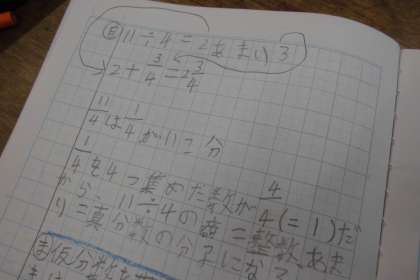 11÷4=2あまり3
2+3/4=2 3/4
11/4は1/4が11こ分
1/4を4つ集めた数が4/4(=1)だ
から、11÷4の商=整数、あま
り=真分数の分子になる
仮分数を